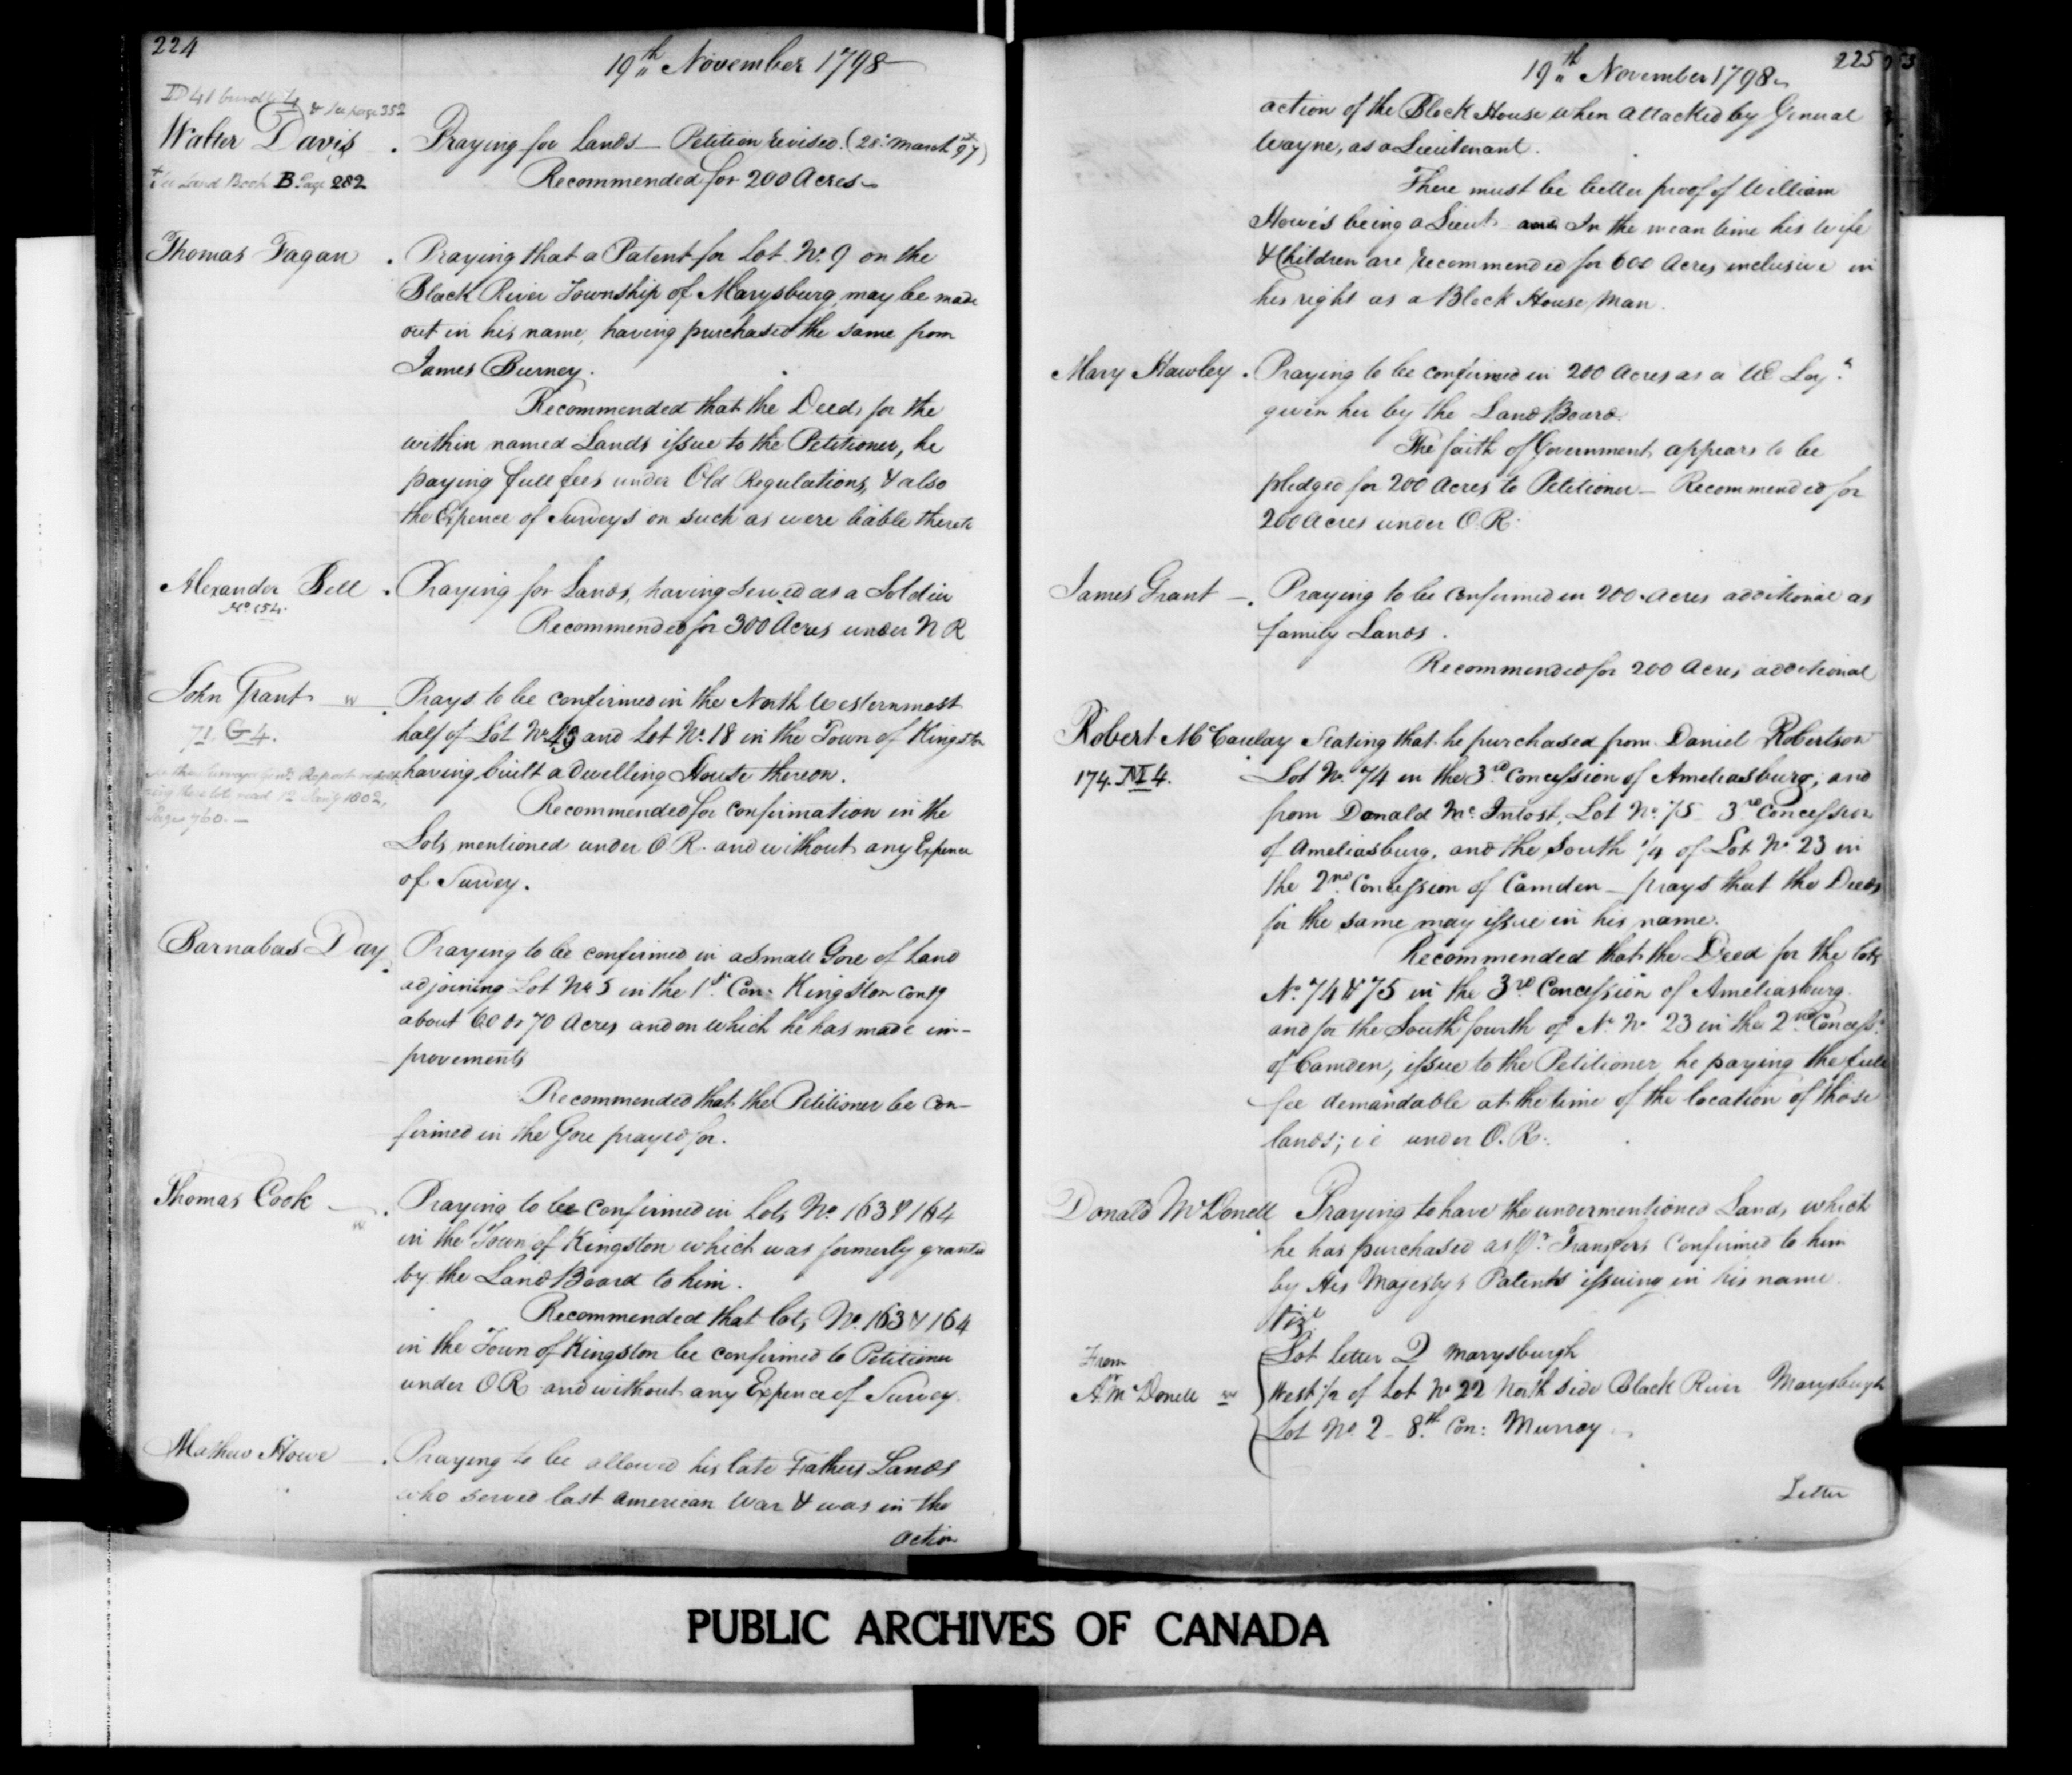 224
19th November 1798
D 41 bundle 4 & see page 352
Walter Davis . Praying for Lands — Petition revised. (28t March 97)
Recommended for 200 Acres
+ See Land Book B Page 282
Thomas Fagan . Praying that a Patent for Lot No. 9 on the
Black River Township of Marysburg, may be made
out in his name, having purchased the same from
James Burney.
Recommended that the Deeds for the
within named Lands issue to the Petitioner, he
paying full fees under Old Regulations, & also
the Expence of Surveys on such as were liable thereto
Alexander Bell . Praying for Lands, having served as a Soldier
No. 154.
Recommended for 300 Acres under N R
John Grant . Prays to be confirmed in the North Westernmost
71. G 4. half of Lot No. 43 and Lot No. 18 in the Town of Kingston
having built a Dwelling House thereon.
See the Surveyor Genls. Report respect
ing these lots read 12 Jany 1802,
Page 760. —
Recommended for confirmation in the
Lots mentioned under O R. and without any Expence
of Survey.
Barnabas Day . Praying to be confirmed in a small Gore of Land
adjoining Lot No. 5 in the 1st. Con: Kingston contg
about 60 or 70 Acres and on which he has made im-
provements
Recommended that the Petitioner be Con-
firmed in the Gore prayed for.
Thomas Cook — . Praying to be confirmed in Lots No. 163 & 164
in the Town of Kingston which was formerly granted
by the Land Board to him.
Recommended that lots No. 163 & 164
in the Town of Kingston be confirmed to Petitioner
under O R and without any Expence of Survey.
Mathew Howe — . Praying to be allowed his late Fathers Lands
who served last American War & was in the
action
225
19th November 1798
action of the Block House when attacked by General
Wayne, as a Lieutenant.
There must be better proof of William
Howe's being a Lieut. and In the mean time his wife
& Children are recommended for 600 Acres inclusive in
his right as a Block House Man.
Mary Hawley . Praying to be confirmed in 200 Acres as a UE Loyt.
given her by the Land Board.
The faith of Government appears to be
pledged for 200 Acres to Petitioner — Recommended for
200 Acres under O. R.
James Grant — . Praying to be confirmed in 200 Acres additional as
family Lands.
Recommended for 200 Acres additional
Robert McCaulay Stating that he purchased from Daniel Robertson
174. M 4. . Lot No. 74 in the 3rd Concession of Ameliasburg; and
from Donald Mc. Intost, Lot No. 75 3rd Concession
of Ameliasburg, and the South 1/4 of Lot No 23 in
the 2nd Concession of Camden — prays that the Deeds
for the same may issue in his name.
Recommended that the Deed for the lots
No. 74 & 75 in the 3rd Concession of Ameliasburg
and for the South fourth of No. No 23 in the 2nd Concessn.
of Camden, issue to the Petitioner he paying the full
fee demandable at the time of the location of those
lands; i e under O. R.
Donald McDonell . Praying to have the undermentioned Lands which
he has purchased as Pr. Transfers Confirmed to him
by His Majesty's Patents issuing in his name.
Vizt
Lot Letter Q Marysburgh
From
A. McDonell West 1/2 of Lot No 22 North Side Black River Marysburgh
Lot No. 2 — 8th Con: Murray
Letter
PUBLIC ARCHIVES OF CANADA